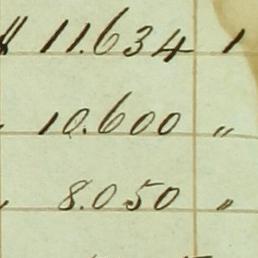 $ 11.634 1
" 10.600 "
" 8.050 "